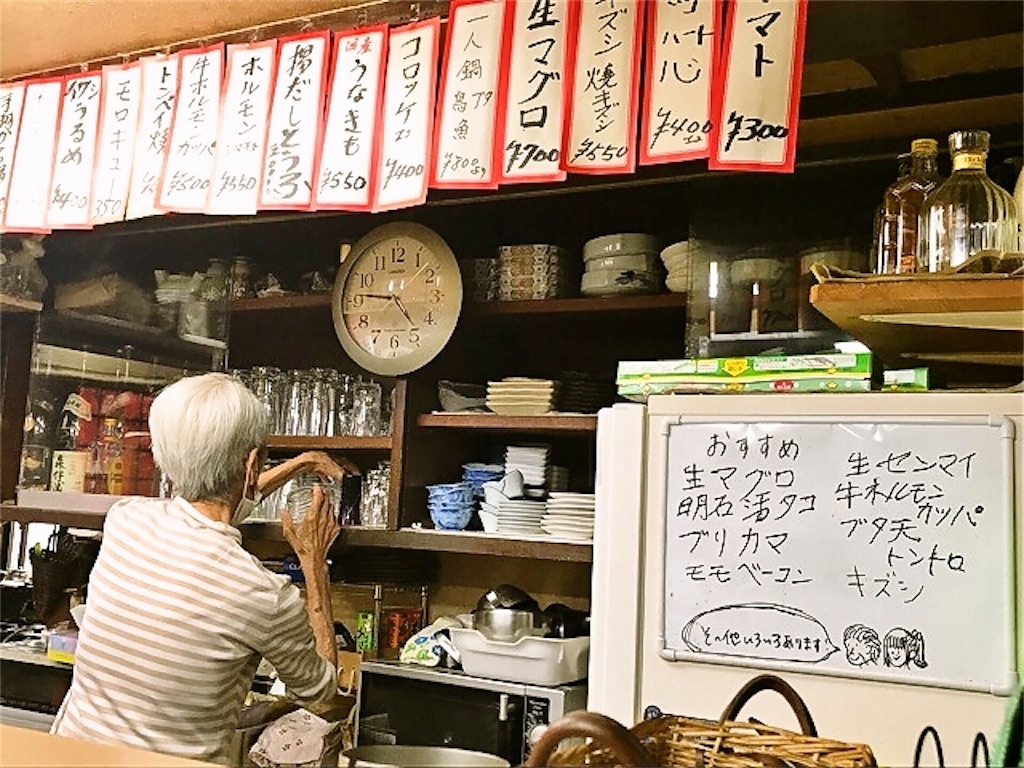 イワシ
うるめ
¥400
モロキュー
350
トンペイ焼
牛ホルモン
カッパ
¥500
ホルモン
¥550
揚だしどうふ
国産
うなきも
¥550
コロッケ
¥400
一人鍋
¥800より
生マグロ
¥700
キズシ
焼キズシ
¥550
ハート
心
¥400
トマト
¥300
12
1
2
3
4
5
6
7
9
10
11
おすすめ
生マグロ
明石活タコ
ブリカマ
モモベーコン
生センマイ
牛ホルモン
カッパ
ブタ天
トントロ
キズシ
その他いろいろあります